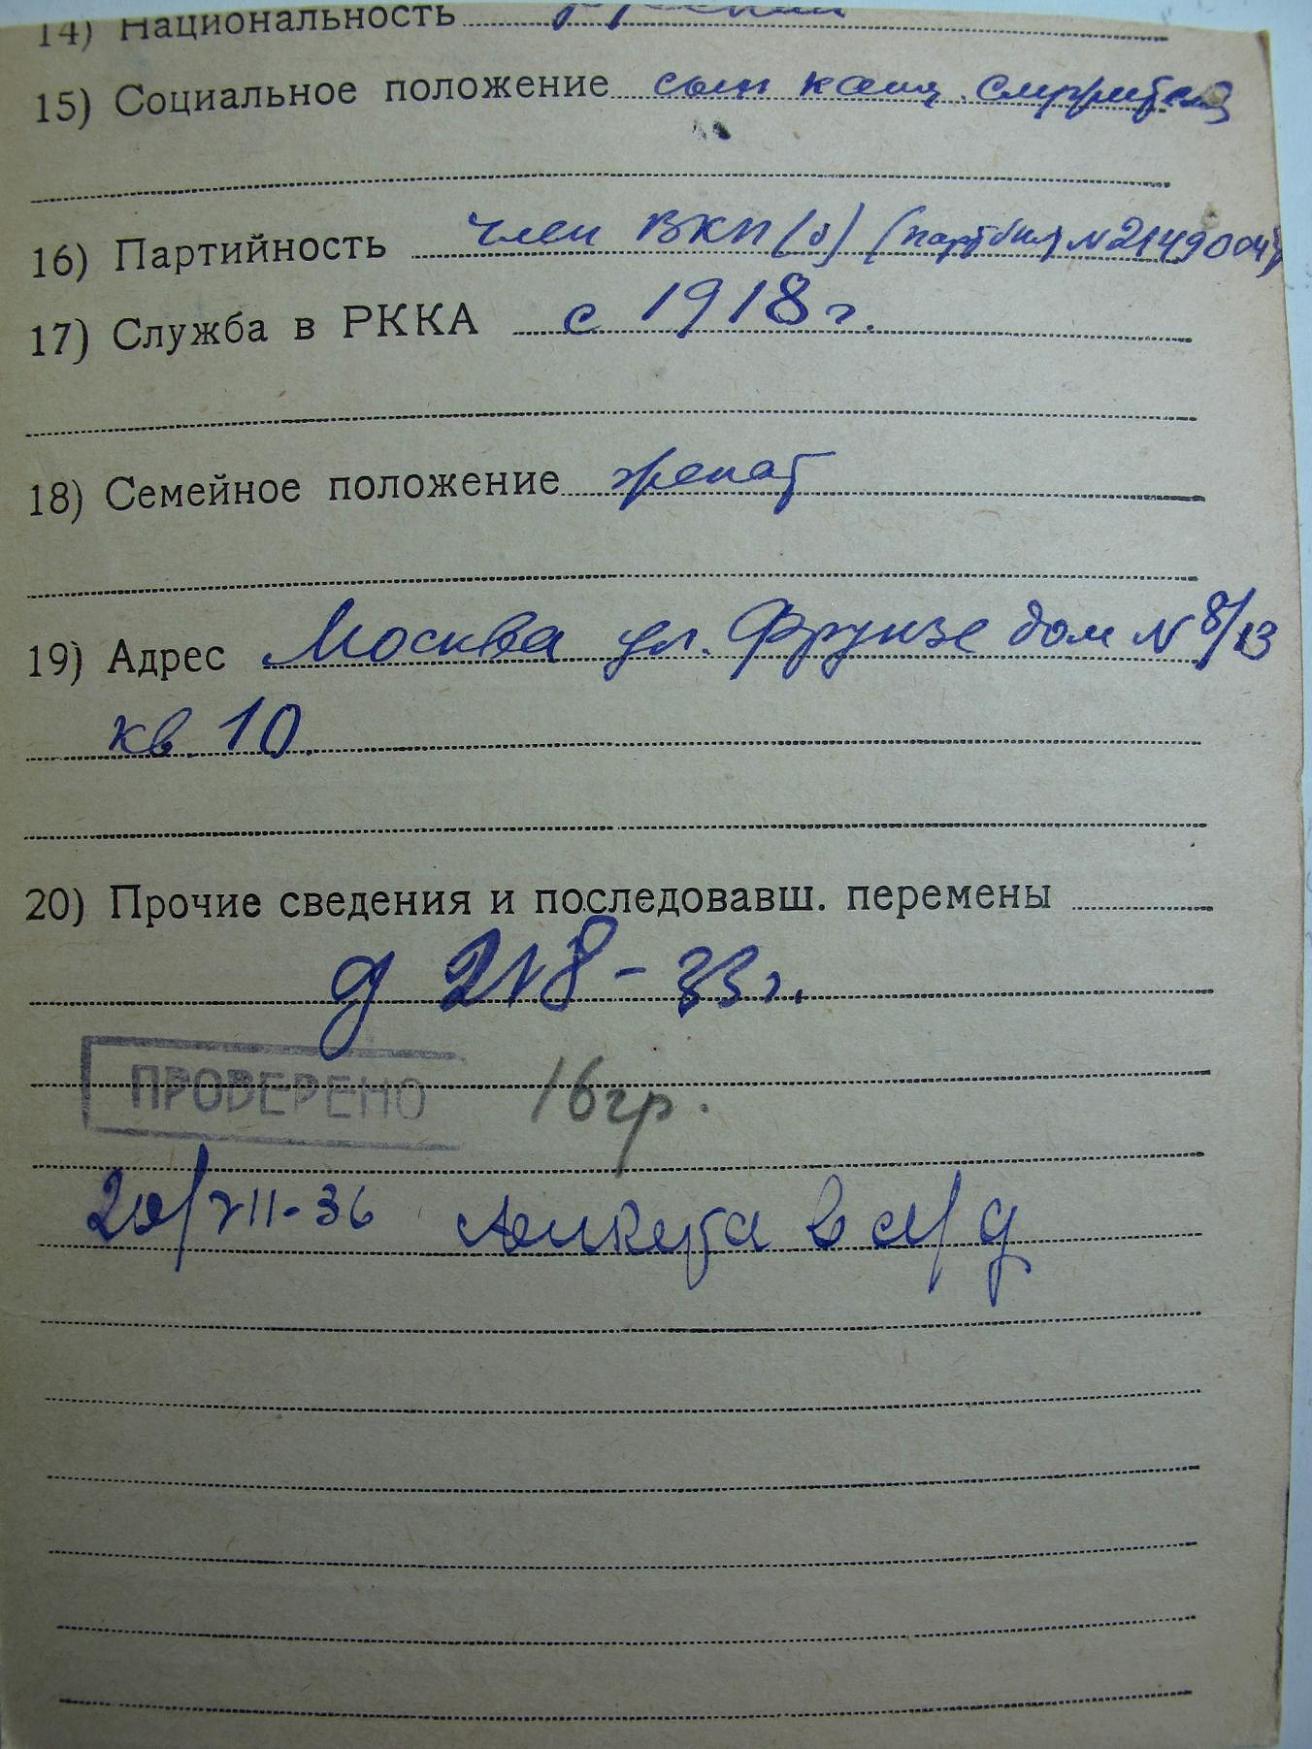 14) Национальность русский
15) Социальное положение сын канц. служителя
16) Партийность член ВКП(б) (партбил N2149004)
17) Служба в РККА с 1918 г.
18) Семейное положение женат
19) Адрес Москва ул. Фрунзе дом N 8/13
кв. 10.
20) Прочие сведения и последовавш. перемены
33 г.
ПРОВЕРЕНО 16 гр.
20/VII-36 Анкета в л/д